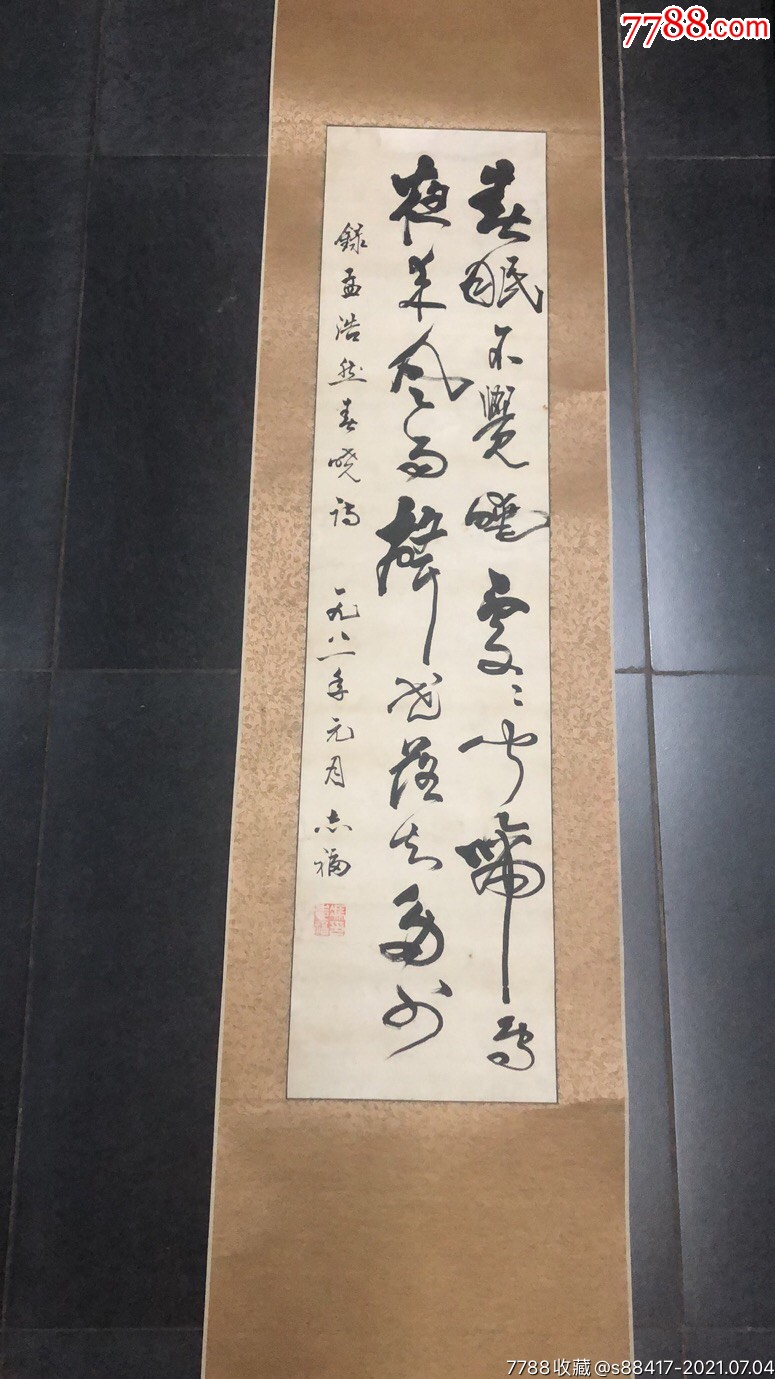 7788.com
春眠不覺曉處〻聞啼鳥
夜来風雨聲花落知多少
録孟浩然春曉詩 一九八二年元月 志福
7788收藏@s88417-2021.07.04